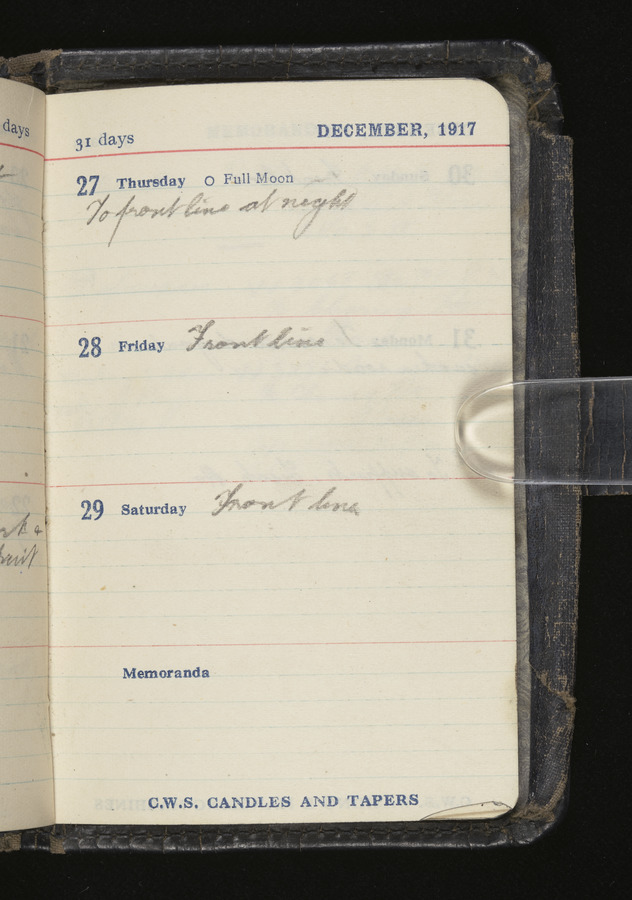 days
31 days DECEMBER, 1917
27 Thursday O Full Moon
To front line at night
28 Friday Front line
29 Saturday Front line
Memoranda
C.W.S. CANDLES AND TAPERS